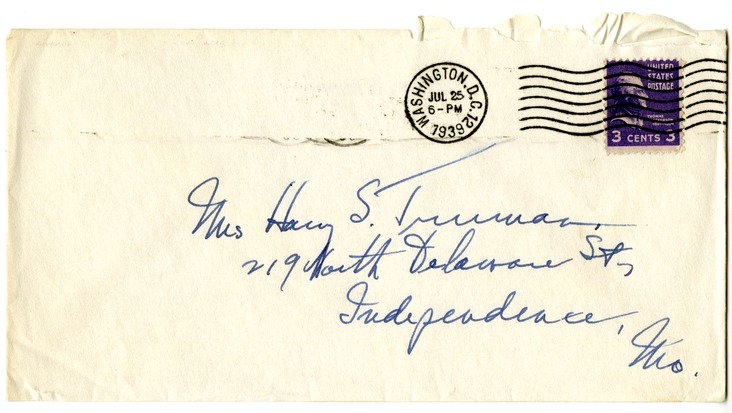 WASHINGTON, D.C. 12
JUL 25
6-PM
1939
UNITED
STATES
POSTAGE
THOMAS
JEFFERSON
3 CENTS 3
Mrs Harry S. Truman,
219 North Delaware St,
Independence,
Mo.